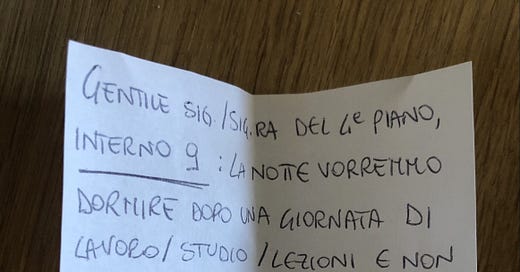 GENTILE SIG./SIG.RA DEL 4e PIANO,
INTERNO 9 : LA NOTTE VORREMMO
DORMIRE DOPO UNA GIORNATA DI
LAVORO/STUDIO/LEZIONI E NON